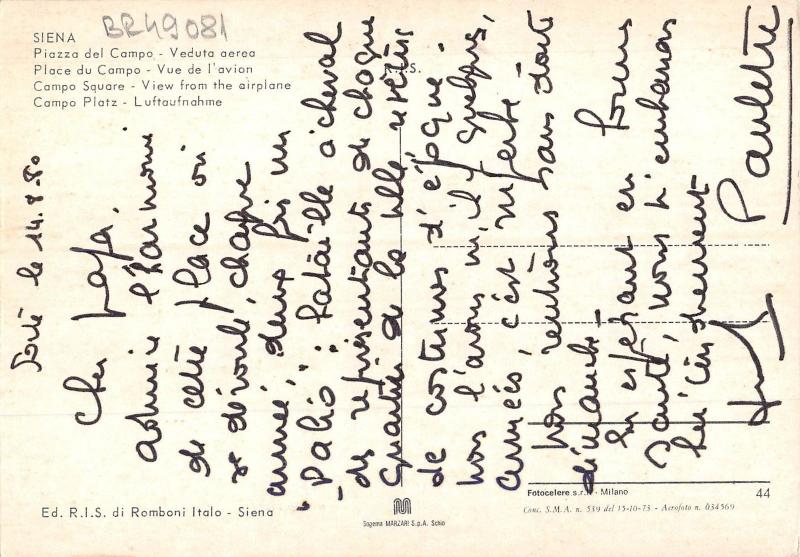 BR49081
SIENA
Piazza del Campo - Veduta aerea
Place du Campo - Vue de l'avion
Campo Square - View from the airplane
Campo Platz - Luftaufnahme
R.I.S.
le 14.8.80
Cher papa,
admire l'harmonie
de cette place où
se déroule, chaque
année, deux fois un
"Palio", bataille à cheval
des représentants de chaque
quartier de la ville vêtus
de costumes d'époque.
nos l'avons vu, il y quelques
années, c'est superbe.
nos rentrons sans doute
dimanche
En espérant en bonne
santé, nous t'embrassons
bien sincèrement
Paulette
Fotocelere s.r.l. - Milano
44
Conc. S.M.A. n. 539 del 15-10-73 - Aerofoto n. 034569
Ed. R.I.S. di Romboni Italo - Siena
Sogema MARZARI S.p.A. Schio